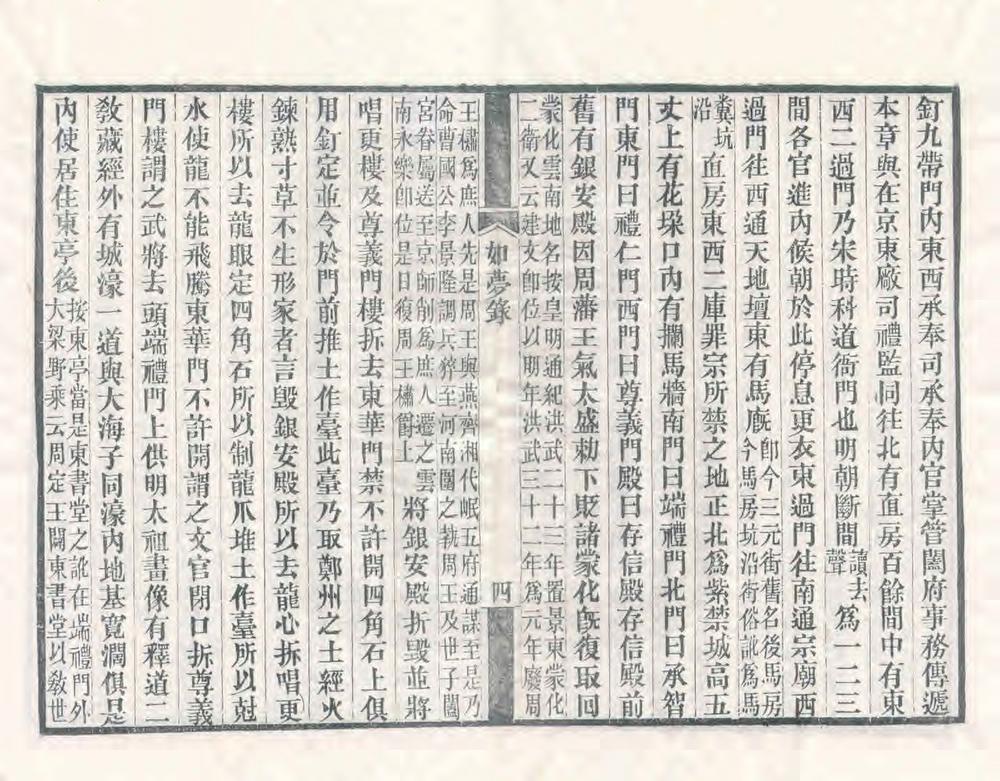 釘九帶門內東西承奉司承奉內官堂管闔府事務傳遞
本章與在京東廠司禮監同往北有直房百餘間中有東
西二過門乃宋時科道衙門也明朝斷間讀去聲為一二三
間各官進內候朝於此停息更衣東過門往南通宗廟西
過門往西通天地壇東有馬廐卽今三元街舊名後馬房今馬房坑沿街俗訛為馬
糞坑沿直房東西二庫罪宗所禁之地正北為紫禁城高五
丈上有花垛口內有攔馬牆南門曰端禮門北門曰承智
門東門曰禮仁門西門曰尊義門殿曰存信殿存信殿前
舊有銀安殿因周藩王氣太盛勅下貶諸蒙化旣復取回
蒙化雲南地名按皇明通紀洪武二十三年置景東蒙化
二衛又云建文卽位以明年洪武三十二年為元年廢周
如夢錄
四
王橚為庶人先是周王與燕齊湘代岷五府通謀至是乃
命曹國公李景隆調兵猝至河南圍之執周王及世子闔
宮眷屬送至京師削為庶人遷之雲
南永樂卽位是日復周王橚爵土將銀安殿折毀並將
唱更樓及尊義門樓拆去東華門禁不許開四角石上俱
用釘定並令於門前推土作臺此臺乃取鄭州之土經火
鍊熟寸草不生形家者言毀銀安殿所以去龍心拆唱更
樓所以去龍眼定四角石所以制龍爪堆土作臺所以尅
水使龍不能飛騰東華門不許開謂之文官閉口折尊義
門樓謂之武將去頭端禮門上供明太祖畫像有釋道二
敎藏經外有城濠一道與大海子同濠內地基寬濶俱是
內使居住東亭後按東亭當是東書堂之訛在端禮門外大梁野乘云周定王闢東書堂以敎世